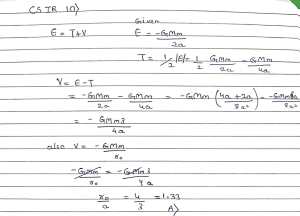 CSIR 10)
Given
E = T+V E = -GMm/2a
T = 1/2 |E| = 1/2 GMm/2a = GMm/4a
V = E - T
= -GMm/2a - GMm/4a = -GMm (4a + 2a/8a²) = -GMm6a/8a²
= - GMm3/4a
also V = - GMm/r₀
-GMm/r₀ = -GMm3/4a
r₀/a = 4/3 = 1.33
A)